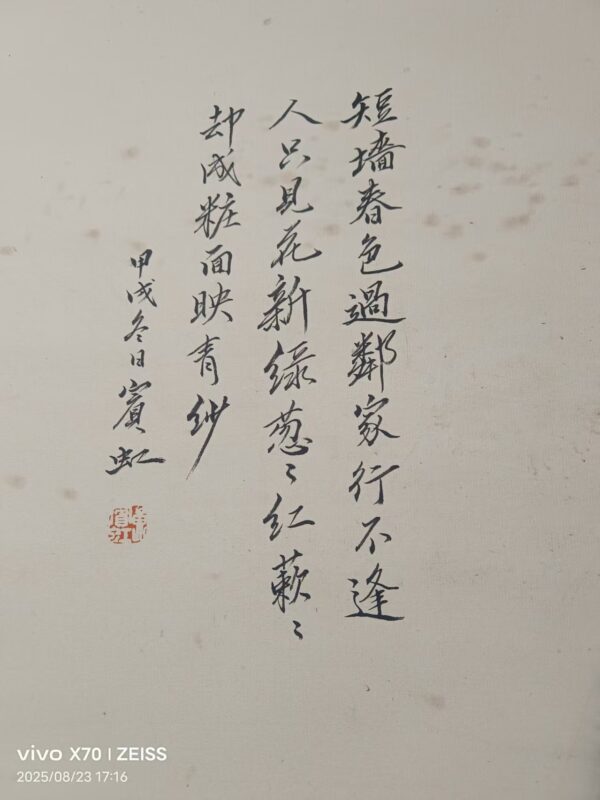 短墙春色過鄰家行不逢
人只見花新绿葱〻红蔌〻
却成粧面映青纱
甲戌冬日賓虹
vivo X70 | ZEISS
2025/08/23 17:16